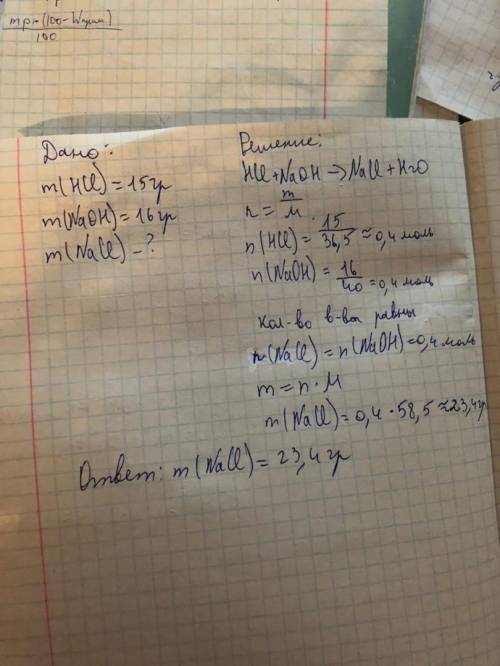 mp-(100-Wприм)
100
Дано:
m(HCl)=15гр
m(NaOH)=16гр
m(NaCl)-?
Решение:
HCl+NaOH→NaCl+H2O
n=m/M.
n(HCl)=15/36,5≈0,4моль
n(NaOH)=16/40=0,4моль
Кол-во в-ва равны
n(NaCl)=n(NaOH)=0,4моль
m=n·M
m(NaCl)=0,4·58,5≈23,4гр
Ответ: m(NaCl)=23,4гр